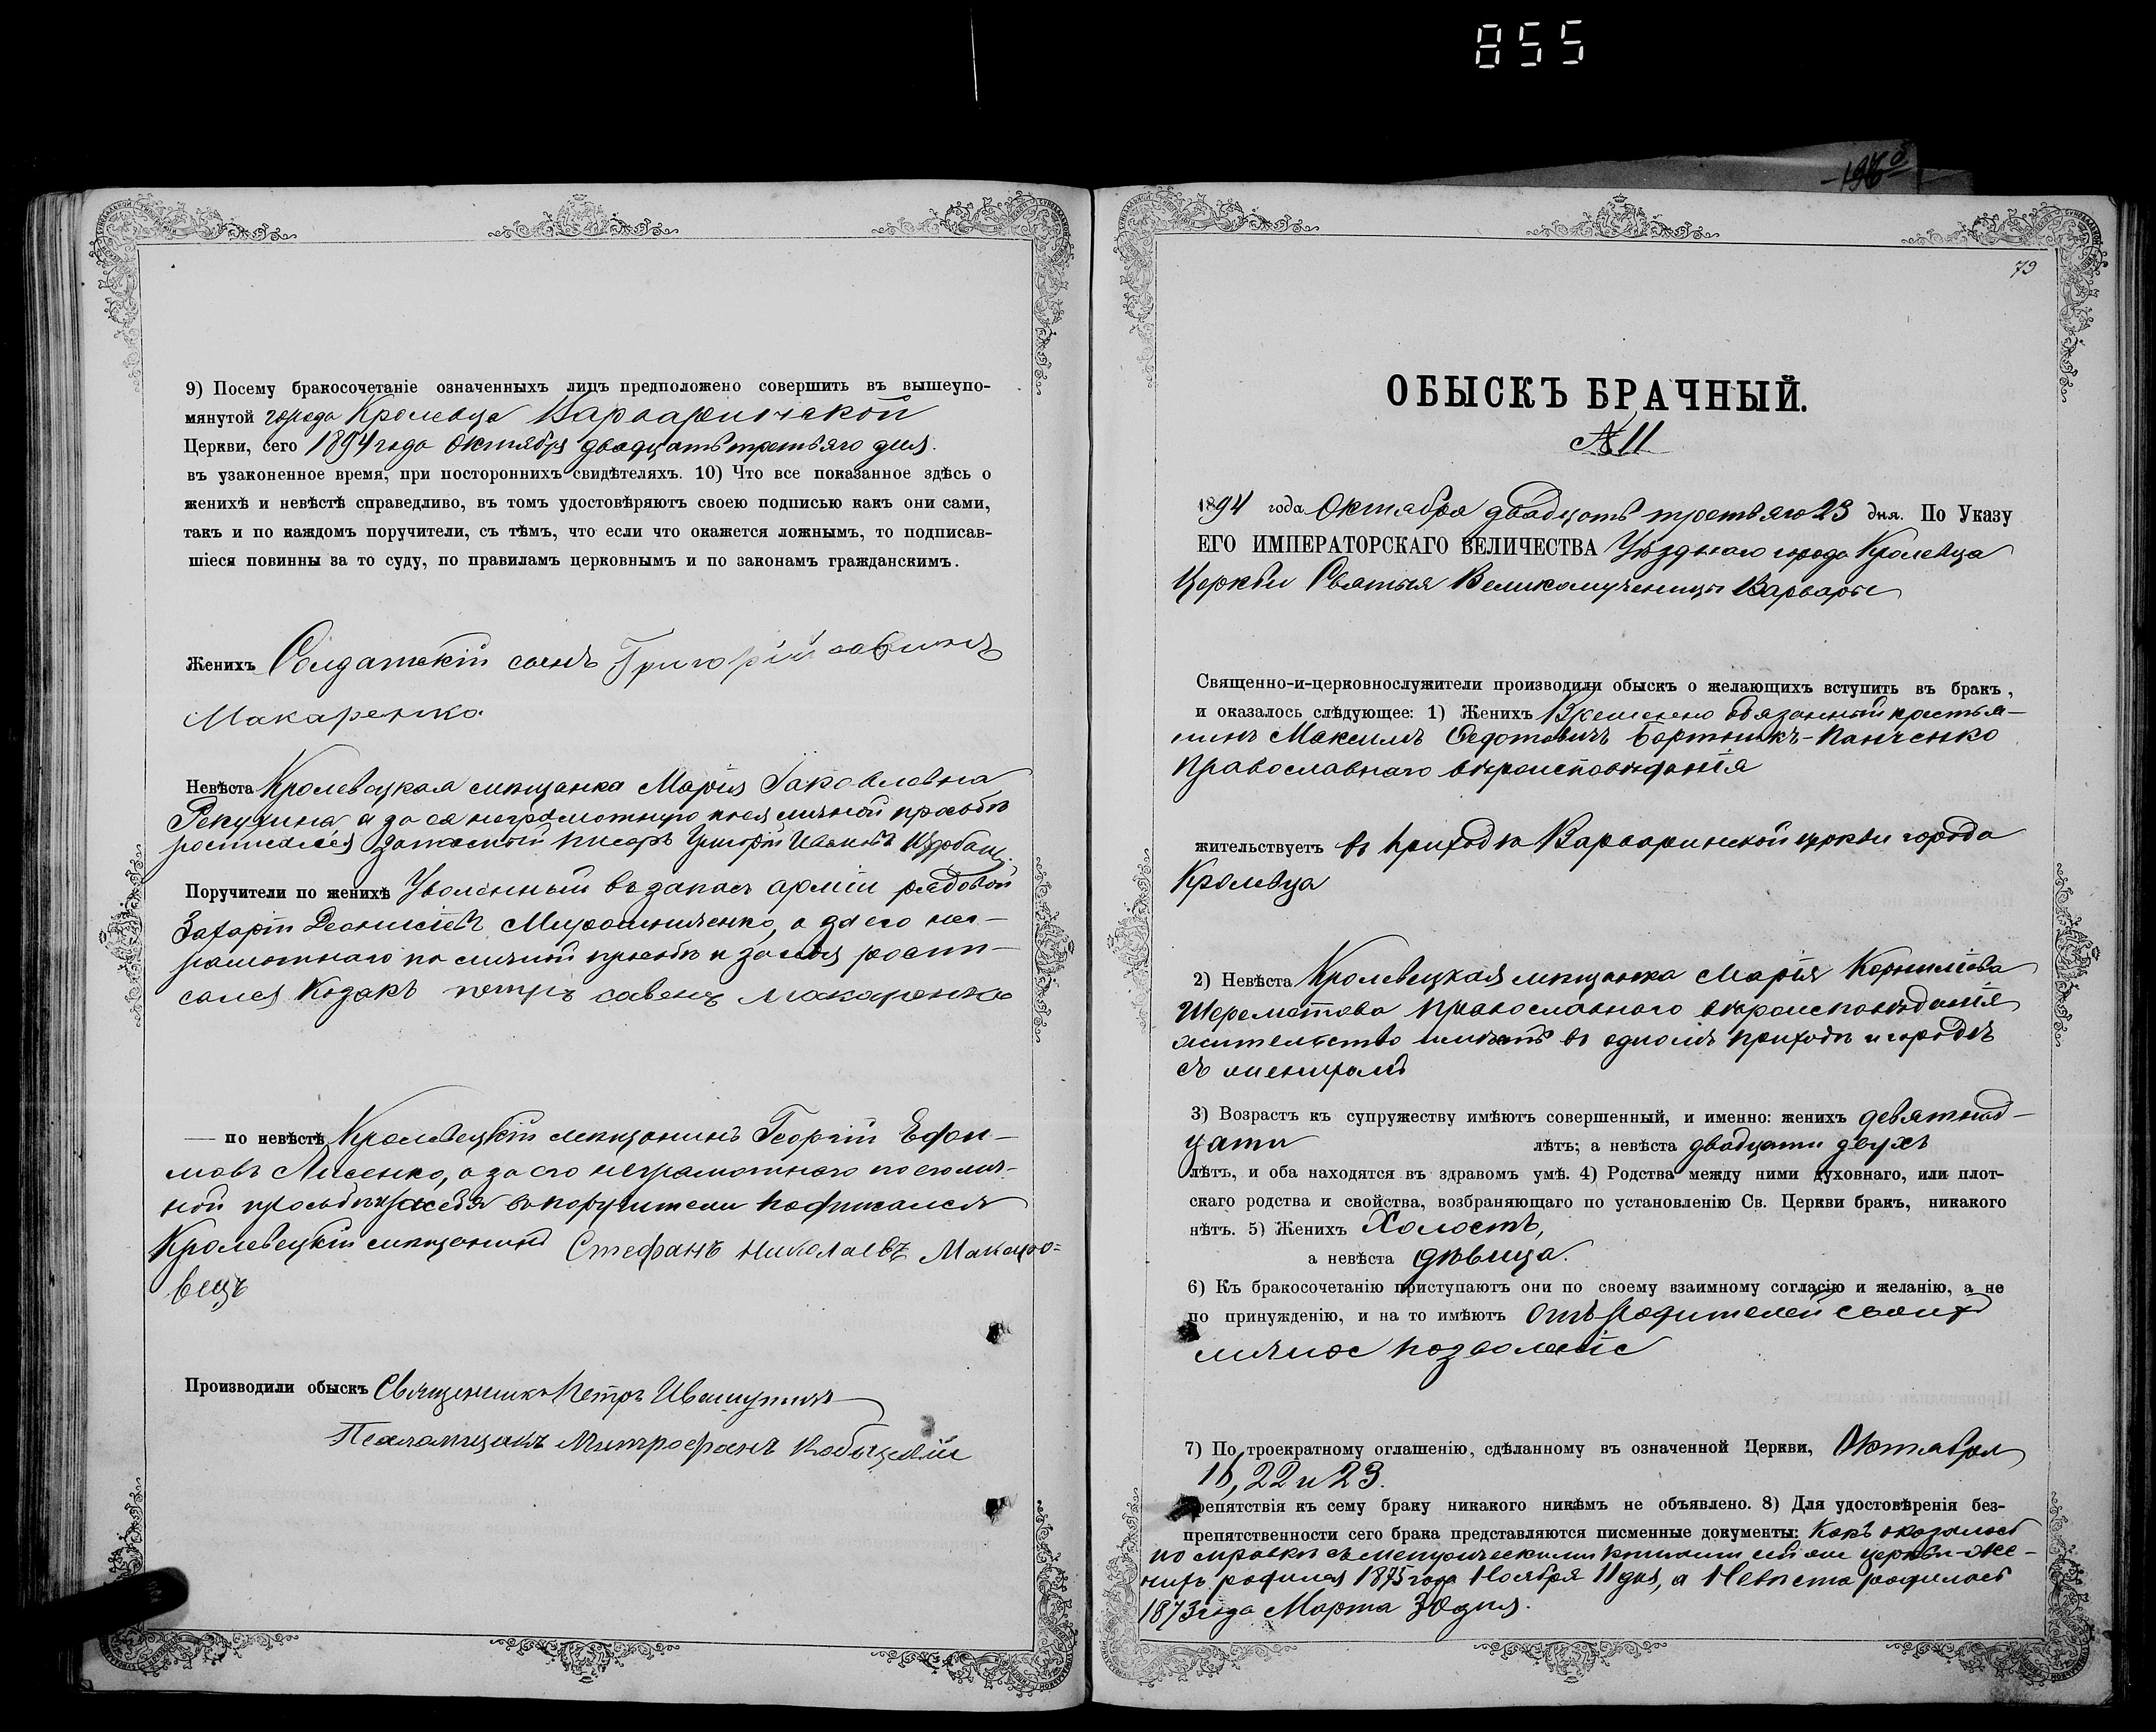 855
9) Посему бракосочетаніе означенныхъ лицъ предположено совершить въ вышеупо-
мянутой города Кролевца Варваринской
Церкви, сего 1894 года Октября двадцать третьяго дня.
въ узаконенное время, при постороннихъ свидѣтеляхъ. 10) Что все показанное здѣсь о
женихѣ и невѣстѣ справедливо, въ томъ удостовѣряютъ своею подписью какъ они сами,
такъ и по каждомъ поручители, съ тѣмъ, что если что окажется ложнымъ, то подписав-
шіеся повинны за то суду, по правиламъ церковнымъ и по законамъ гражданскимъ.
Женихъ Солдатскій сынъ Григорій
Макаренко
Невѣста Кролевецкая мѣщанка Марія Іаковлевна
а за ея неграмотную по ея личной просьбѣ
росписался писарь Григорій Ивановъ
Поручители по женихѣ Уволенный въ запасъ арміи рядовой
Захарій Мирошниченко, а за его нег-
рамотнаго по личной просьбѣ и за себя роспи-
сался Козакъ петръ савенъ Макаренко
— по невѣстѣ Кролевецкій мѣщанинъ Георгій Ефи-
мовъ Лисенко, а за его неграмотнаго по его лич-
ной просьбѣ и за себя въ поручители подписался
Кролевецкій мѣщанинъ Стефанъ Николаевъ
вецъ
Производили обыскъ Священникъ Петръ
Псаломщикъ Митрофанъ
79
ОБЫСКЪ БРАЧНЫЙ.
№ 11
1894 года Октября двадцать третьяго 23 дня. По Указу
ЕГО ИМПЕРАТОРСКАГО ВЕЛИЧЕСТВА Уѣзднаго города Кролевца
Церкви Святыя Великомученицы Варвары
Священно-и-церковнослужители производили обыскъ о желающихъ вступить въ бракъ,
и оказалось слѣдующее: 1) Женихъ Временно обязанный крестья-
нинъ Максимъ Федотовичъ Бортникъ-Панченко
Православнаго вѣроисповѣданія
жительствуетъ въ приходѣ Варваринской церкви города
Кролевца
2) Невѣста Кролевецкая мѣщанка Марія Корнилова
Шереметова православнаго вѣроисповѣданія
жительство имѣетъ въ одномъ приходѣ и городѣ
съ женихомъ
3) Возрастъ къ супружеству имѣютъ совершенный, и именно: женихъ девятнад-
цати лѣтъ; а невѣста двадцати двухъ
лѣтъ, и оба находятся въ здравомъ умѣ. 4) Родства между ними духовнаго, или плот-
скаго родства и свойства, возбраняющаго по установленію Св. Церкви бракъ, никакого
нѣтъ. 5) Женихъ Холостъ,
а невѣста дѣвица.
6) Къ бракосочетанію приступаютъ они по своему взаимному согласію и желанію, а не
по принужденію, и на то имѣютъ отъ родителей своихъ
личное позволеніе
7) По троекратному оглашенію, сдѣланному въ означенной Церкви, Октября
16, 22 и 23.
репятствія къ сему браку никакого никѣмъ не объявлено. 8) Для удостовѣренія без-
препятственности сего брака представляются писменные документы: Какъ оказалось
по справкѣ съ метрическими книгами сей же церкви же-
нихъ родился 1875 года Ноября 11 дня, а Невѣста родилась
1873 года Марта 30 дня.